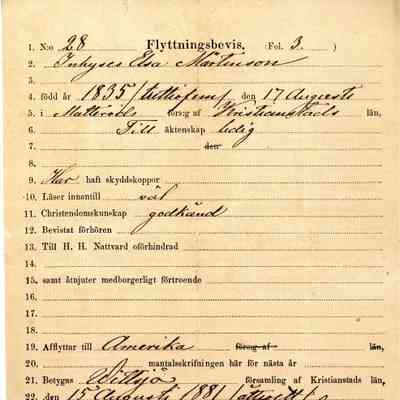 1. N:o 28 Flyttningsbevis. (Fol. 3. )
2. Inhyses Elsa Mårtenson
3.
4. född år 1835 (trettiofem) den 17 Augusti
5. i Matteröds förs:g af Kristianstads län,
6. Till äktenskap ledig
7. den
8.
9. Har haft skyddskoppor
10. Läser innantill väl
11. Christendomskunskap godkänd
12. Bevistat förhören
13. Till H. H. Nattvard oförhindrad
14.
15. samt åtnjuter medborgerligt förtroende
16.
17.
18.
19. Afflyttar till Amerika förs:g af län,
20. mantalsskrifningen här för nästa år
21. Betygas Wittsjö församling af Kristianstads län,
22. den 15 Augusti 1881 (åttioett)